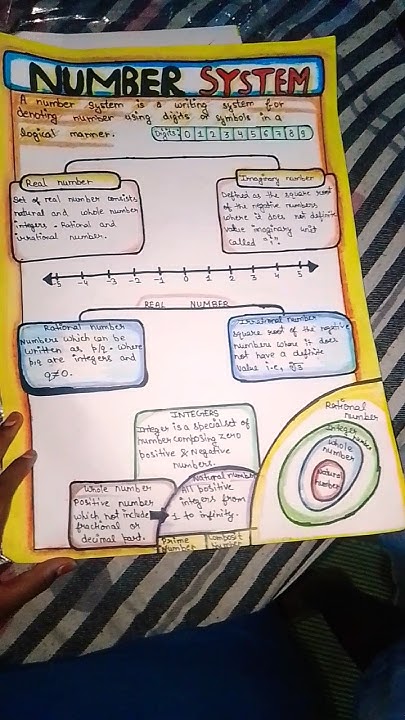 NUMBER SYSTEM
A number system is a writing system for
denoting number using digits or symbols in a
logical manner.
Digits: 0 1 2 3 4 5 6 7 8 9
Real number
Set of real number consists
natural and whole number
integers, Rational and
irrational number.
Imaginary number
Defined as the square root
of the negative numbers
where it does not definite
value imaginary unit
called "i".
-5 -4 -3 -2 -1 0 1 2 3 4 5
REAL NUMBER
Rational number
Numbers which can be
written as p/q. where
p,q are integers and
q≠0.
Irrational number
square root of the negative
numbers where it does
not have a definite
value i.e, √3
INTEGERS
Integer is a special set of
number composing zero
positive & Negative
numbers.
Whole number
Positive number
which not include
fractional or
decimal part.
Natural number
All positive
integers from
1 to infinity.
Prime
Number
Composit
Number
Rational
number
Integer
Whole
number
Natural
number